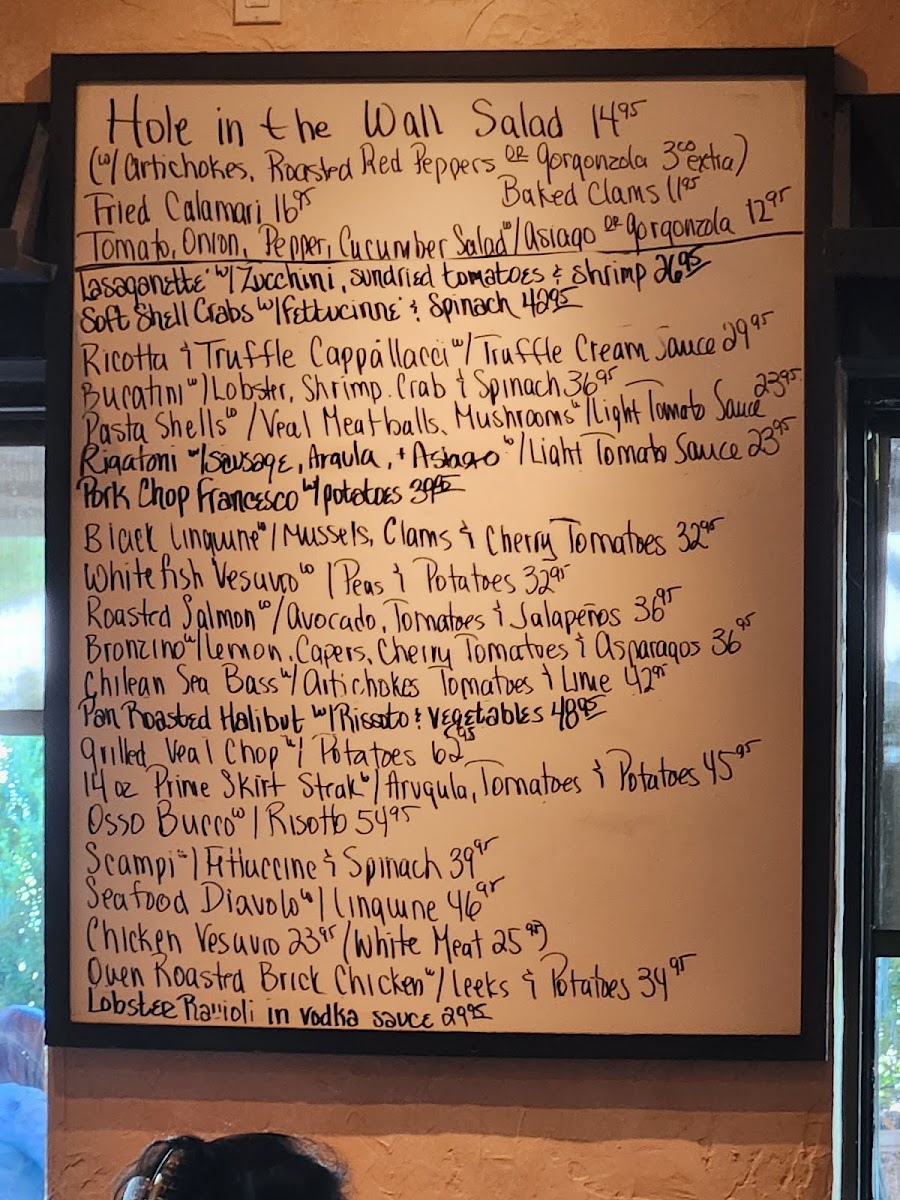 Hole in the Wall Salad 14⁹⁵
(w/ Artichokes, Roasted Red Peppers OR Gorgonzola 3⁰⁰ extra)
Fried Calamari 16⁹⁵ Baked Clams 11⁹⁵
Tomato, Onion, Pepper, Cucumber Salad w/ Asiago OR Gorgonzola 12⁹⁵
Lasaganette w/ Zucchini, sundried tomatoes & shrimp 26⁹⁵
Soft Shell Crabs w/ Fettucinne & Spinach 42⁹⁵
Ricotta & Truffle Cappallacci w/ Truffle Cream Sauce 29⁹⁵
Bucatini w/ Lobster, Shrimp, Crab & Spinach 36⁹⁵
Pasta Shells w/ Veal Meatballs, Mushrooms w/ Light Tomato Sauce 23⁹⁵
Rigatoni w/ Sausage, Arqula, + Asiago w/ Light Tomato Sauce 23⁹⁵
Pork Chop Francesco w/ potatoes 39⁹⁵
Black Linguine w/ Mussels, Clams & Cherry Tomatoes 32⁹⁵
Whitefish Vesuvio w/ Peas & Potatoes 32⁹⁵
Roasted Salmon w/ Avocado, Tomatoes & Jalapeños 36⁹⁵
Bronzino w/ Lemon, Capers, Cherry Tomatoes & Asparagos 36⁹⁵
Chilean Sea Bass w/ Artichokes Tomatoes & Lime 42⁹⁵
Pan Roasted Halibut w/ Rissoto & Vegetables 48⁹⁵
Grilled Veal Chop w/ Potatoes 62⁹⁵
14 oz Prime Skirt Streak w/ Arugula, Tomatoes & Potatoes 45⁹⁵
Osso Bucco w/ Risotto 54⁹⁵
Scampi w/ Fettuccine & Spinach 39⁹⁵
Seafood Diavolo w/ Linguine 46⁹⁵
Chicken Vesuvio 23⁹⁵ (White Meat 25⁹⁵)
Oven Roasted Brick Chicken w/ Leeks & Potatoes 34⁹⁵
Lobster Ravioli in vodka sauce 29⁹⁵